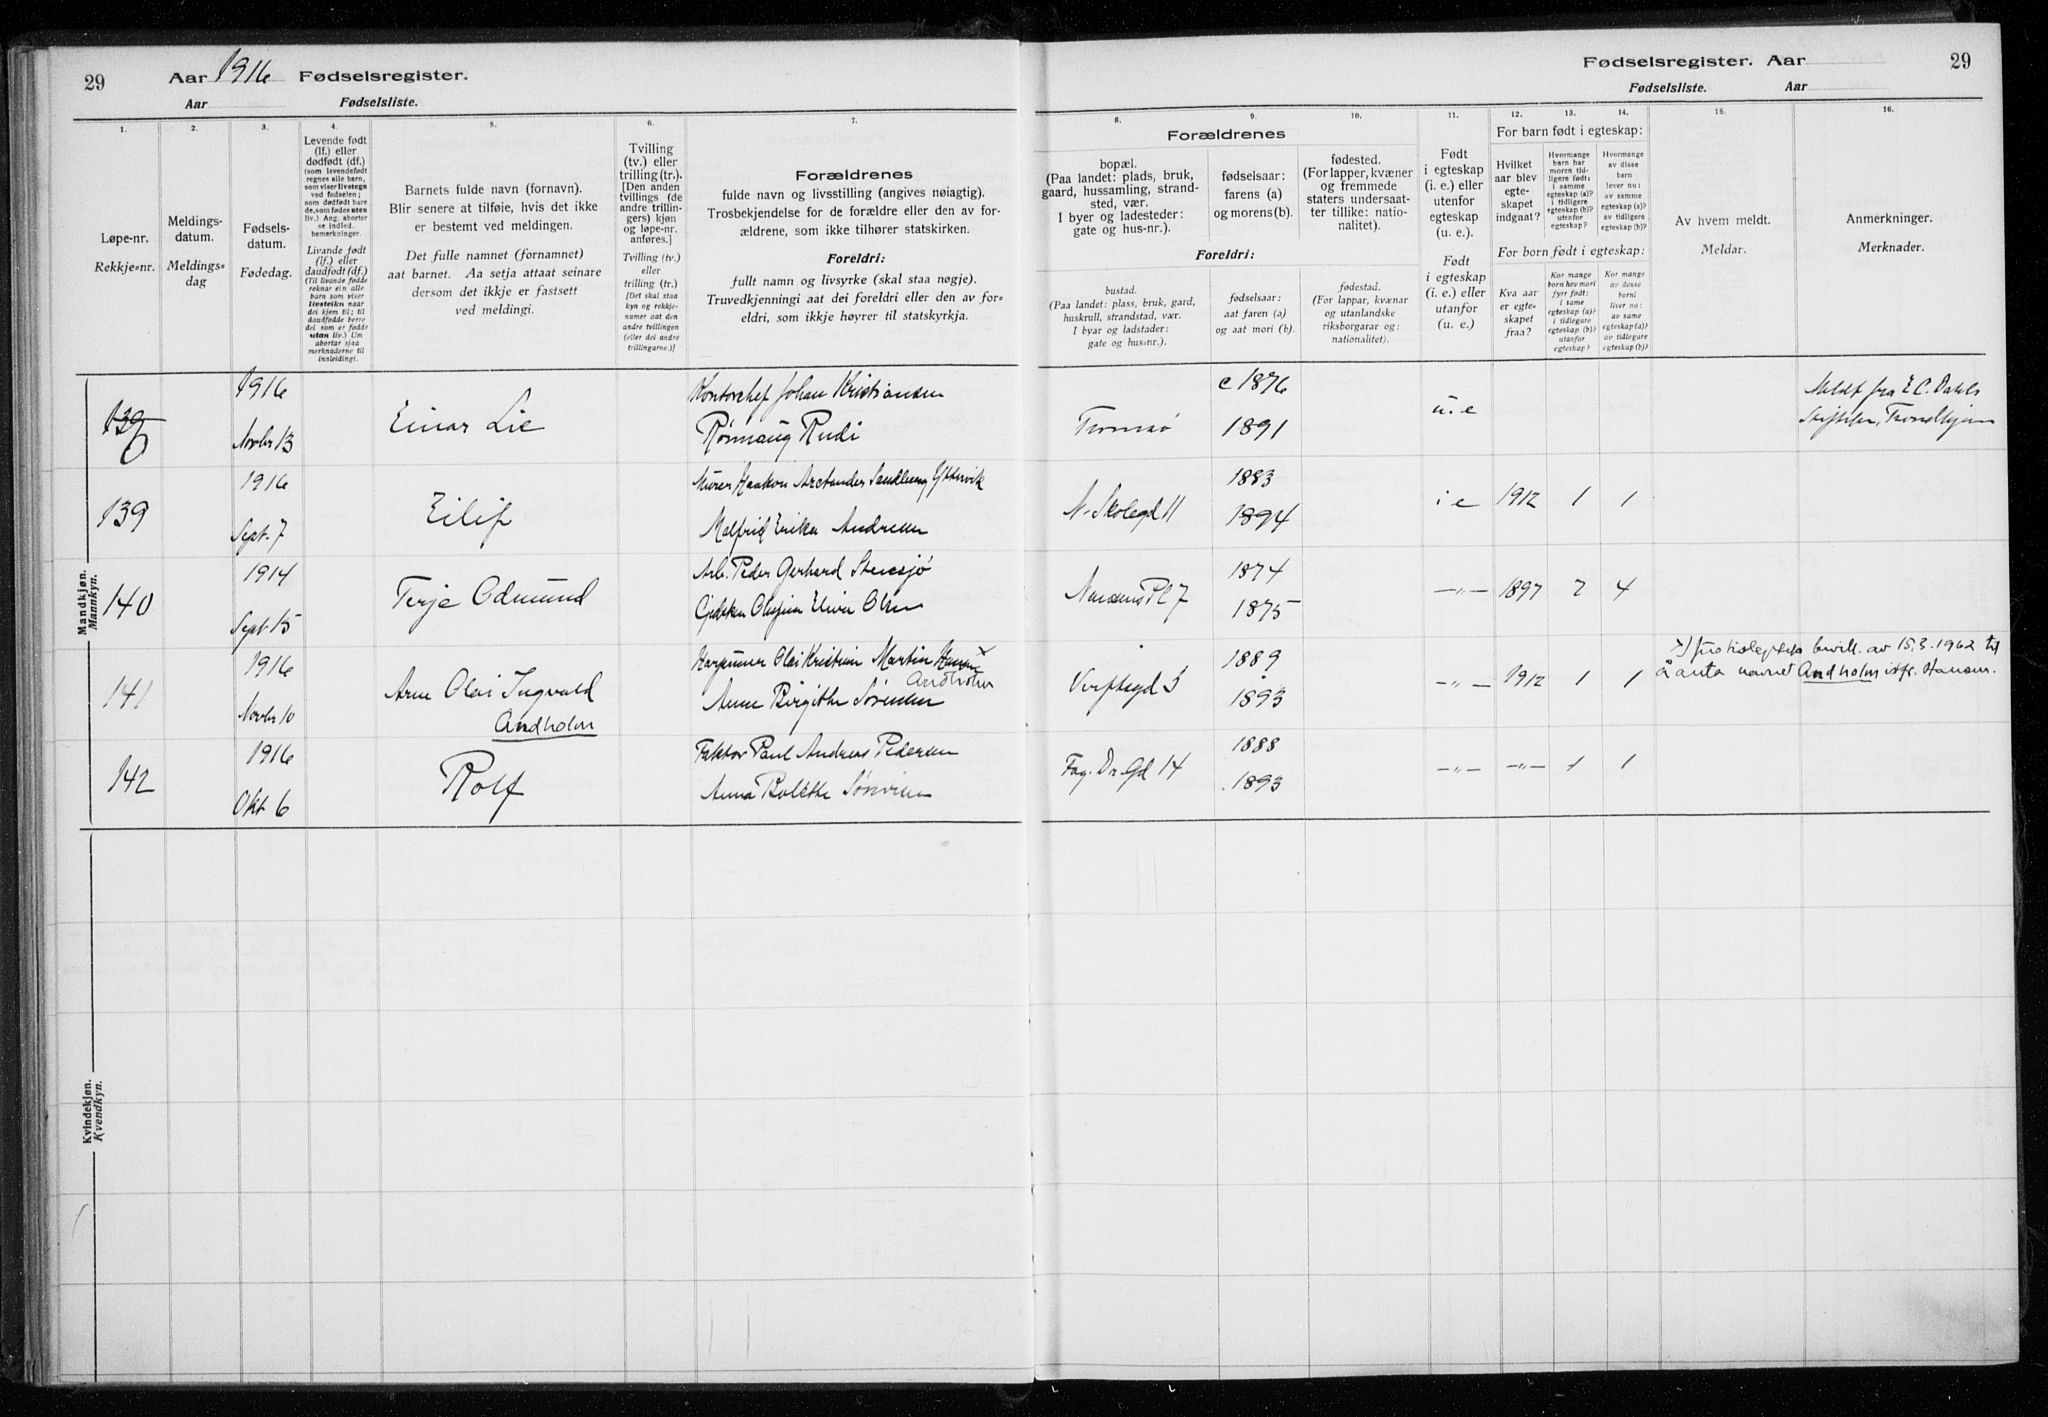 29
Aar 1916 Fødselsregister.
Aar Fødselsliste.
1.
Løpe-nr.
Rekkje=nr.
2.
Meldings-
datum.
Meldings=
dag
3.
Fødsels-
datum.
Fødedag.
4.
Levende født
(lf.) eller
dødfødt (df.)
(som levendefødt
regnes alle barn,
som viser livstegn
ved fødselen;
som dødfødt bare
de, som fødes uten
liv.) Ang. aborter
se indled.
bemerkninger.
Livande født
(lf.) eller
daudfødt (df.)
(Til livande fødde
reknar ein alle
barn som viser
livsteikn naar
dei kjem til; til
daudfødde berre
dei som er fødde
utan liv.) Um
abortar sjaa
merknaderne til
innleidingi.
5.
Barnets fulde navn (fornavn).
Blir senere at tilføie, hvis det ikke
er bestemt ved meldingen.
Det fulle namnet (fornamnet)
aat barnet. Aa setja attaat seinare
dersom det ikkje er fastsett
ved meldingi.
6.
Tvilling
(tv.) eller
trilling (tr.).
[Den anden
tvillings (de
andre trillin-
gers) kjøn
og løpe-nr.
anføres.]
Tvilling (tv.)
eller
trilling (tr.)
[Det skal staa
kyn og rekkje-
numer aat den
andre tvillingen
(eller dei andre
trillingarne.)]
7.
Forældrenes
fulde navn og livsstilling (angives nøiagtig).
Trosbekjendelse for de forældre eller den av for-
ældrene, som ikke tilhører statskirken.
Foreldri:
fullt namn og livsyrke (skal staa nøgje).
Truvedkjenningi aat dei foreldri eller den av for-
eldri, som ikkje høyrer til statskyrkja.
Mandkjøn.
Mannkyn.
139
1916
Novbr 13
Einar Lie
Kontorchef Johan Kristiansen
Rønnaug Rudi
139
1916
Sept. 7
Eilif
Murer Haakon Arctander Sandberg Yttervik
Malfrid Erika Andresen
140
1914
Sept 15
Terje Odmund
Arb. Peder Gerhard Stensjø
141
1916
Novbr 10
Arne Olai Ingvald
Andholm
Olai Kristian Martin Hansen x
Andholm
Anne Birgitte Sørensen
142
1916
Okt 6
Rolf
Faktor Paul Andreas Pedersen
Anna
Kvindekjøn.
Kvendkyn.
Fødselsregister. Aar
29
Fødselsliste. Aar
8.
Forældrenes
bopæl.
(Paa landet: plads, bruk,
gaard, hussamling, strand-
sted, vær.
I byer og ladesteder:
gate og hus-nr.).
Foreldri:
bustad.
(Paa landet: plass, bruk, gard,
huskrull, strandstad, vær.
I byar og ladstader:
gate og hus=nr.).
9.
fødselsaar:
farens (a)
og morens (b).
fødselsaar:
aat faren (a)
og aat mori (b).
10.
fødested.
(For lapper, kvæner
og fremmede
staters undersaat-
ter tillike: natio-
nalitet).
fødestad.
(For lappar, kvænar
og utanlandske
riksborgarar og:
nationalitet).
11.
Født
i egteskap
(i. e.) eller
utenfor
egteskap
(u. e.).
Født
i egteskap
(i. e.) eller
utanfor
(u. e.).
12.
For barn født i egteskap:
Hvilket
aar blev
egte-
skapet
indgaat?
For born født i egteskap:
Kva aar
er egte-
skapet
fraa?
13.
Hvormange
barn har
moren tid-
ligere født:
i samme
egteskap (a)?
i tidligere
egteskap (b)?
utenfor
egteskap?
Kor mange
born hev mori
fyrr født:
i same
egteskap (a)?
i tidlegare
egteskap (b)?
utanfor
egteskap?
14.
Hvormange
av disse
barn
lever nu:
av samme
egteskap (a)?
av tidligere
egteskap (b)?
Kor mange
av desse
borni
liver no:
av same
egteskap (a)?
av tidlegare
egteskap (b)?
15.
Av hvem meldt.
Meldar.
16.
Anmerkninger.
Merknader.
Tromsø
c 1876
1891
u. e
Meldt fra E. C. Dahls
Stiftelse, Trondhjem
N. Skolegd 11
1883
1894
i e
1912
1
1
Nansens Pl 7
1874
1875
—„—
1897
7
4
Verftsgd 3
1889
1893
—„—
1912
1
1
x) Justisdeptets bevill. av 15.3.1962 til
å anta navnet Andholm istf. Hansen.
Fog. Dr. Gd 14
1888
1893
—„—
—„—
1
1